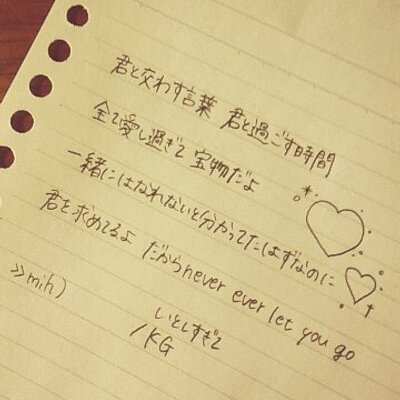 君と交わす言葉 君と過ごす時間
全て愛し過ぎて 宝物だよ
一緒にはなれないと分かってたはずなのに
君を求めてるよ だからnever ever let you go
>>mih)
いとしすぎて
/KG